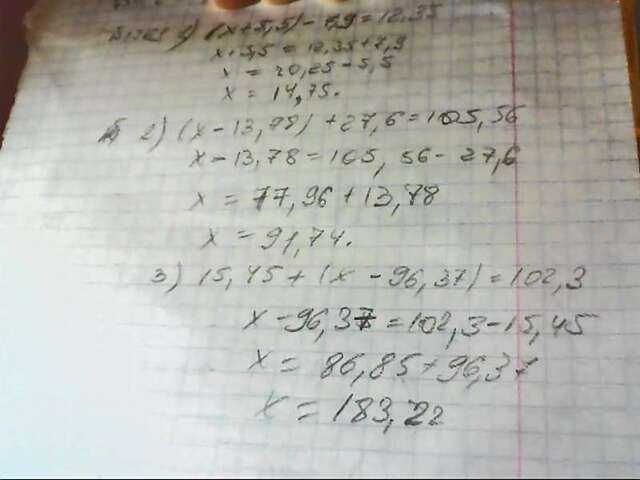 1) (x+5,5)-7,9=12,35
x+5,5=12,35+7,9
x=20,25-5,5
x=14,75.
2) (x-13,78)+27,6=105,56
x-13,78=105,56-27,6
x=77,96+13,78
x=91,74.
3) 15,45+(x-96,37)=102,3
x-96,37=102,3-15,45
x=86,85+96,37
x=183,22